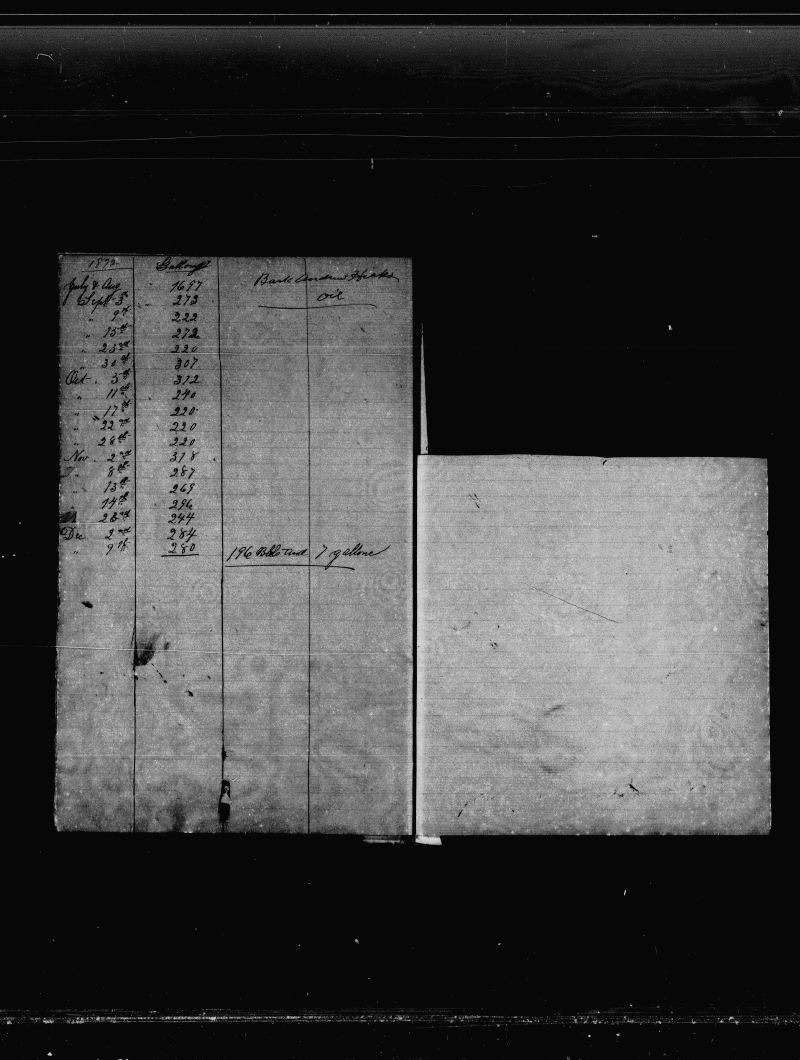 1872 Gallons
Bark Andrew Hicks
oil
July & Aug 1697
Sept 3d 273
" 9th 222
" 15th 272
" 23rd 220
" 30th 307
Oct. 5th 372
" 11th 240
" 17th 220
" 22nd 220
" 28th 220
Nov. 2nd 318
" 8th 287
" 13th 269
" 14th 296
" 28th 244
Dec 2nd 284
" 9th 280 196 Bbls and 7 gallons